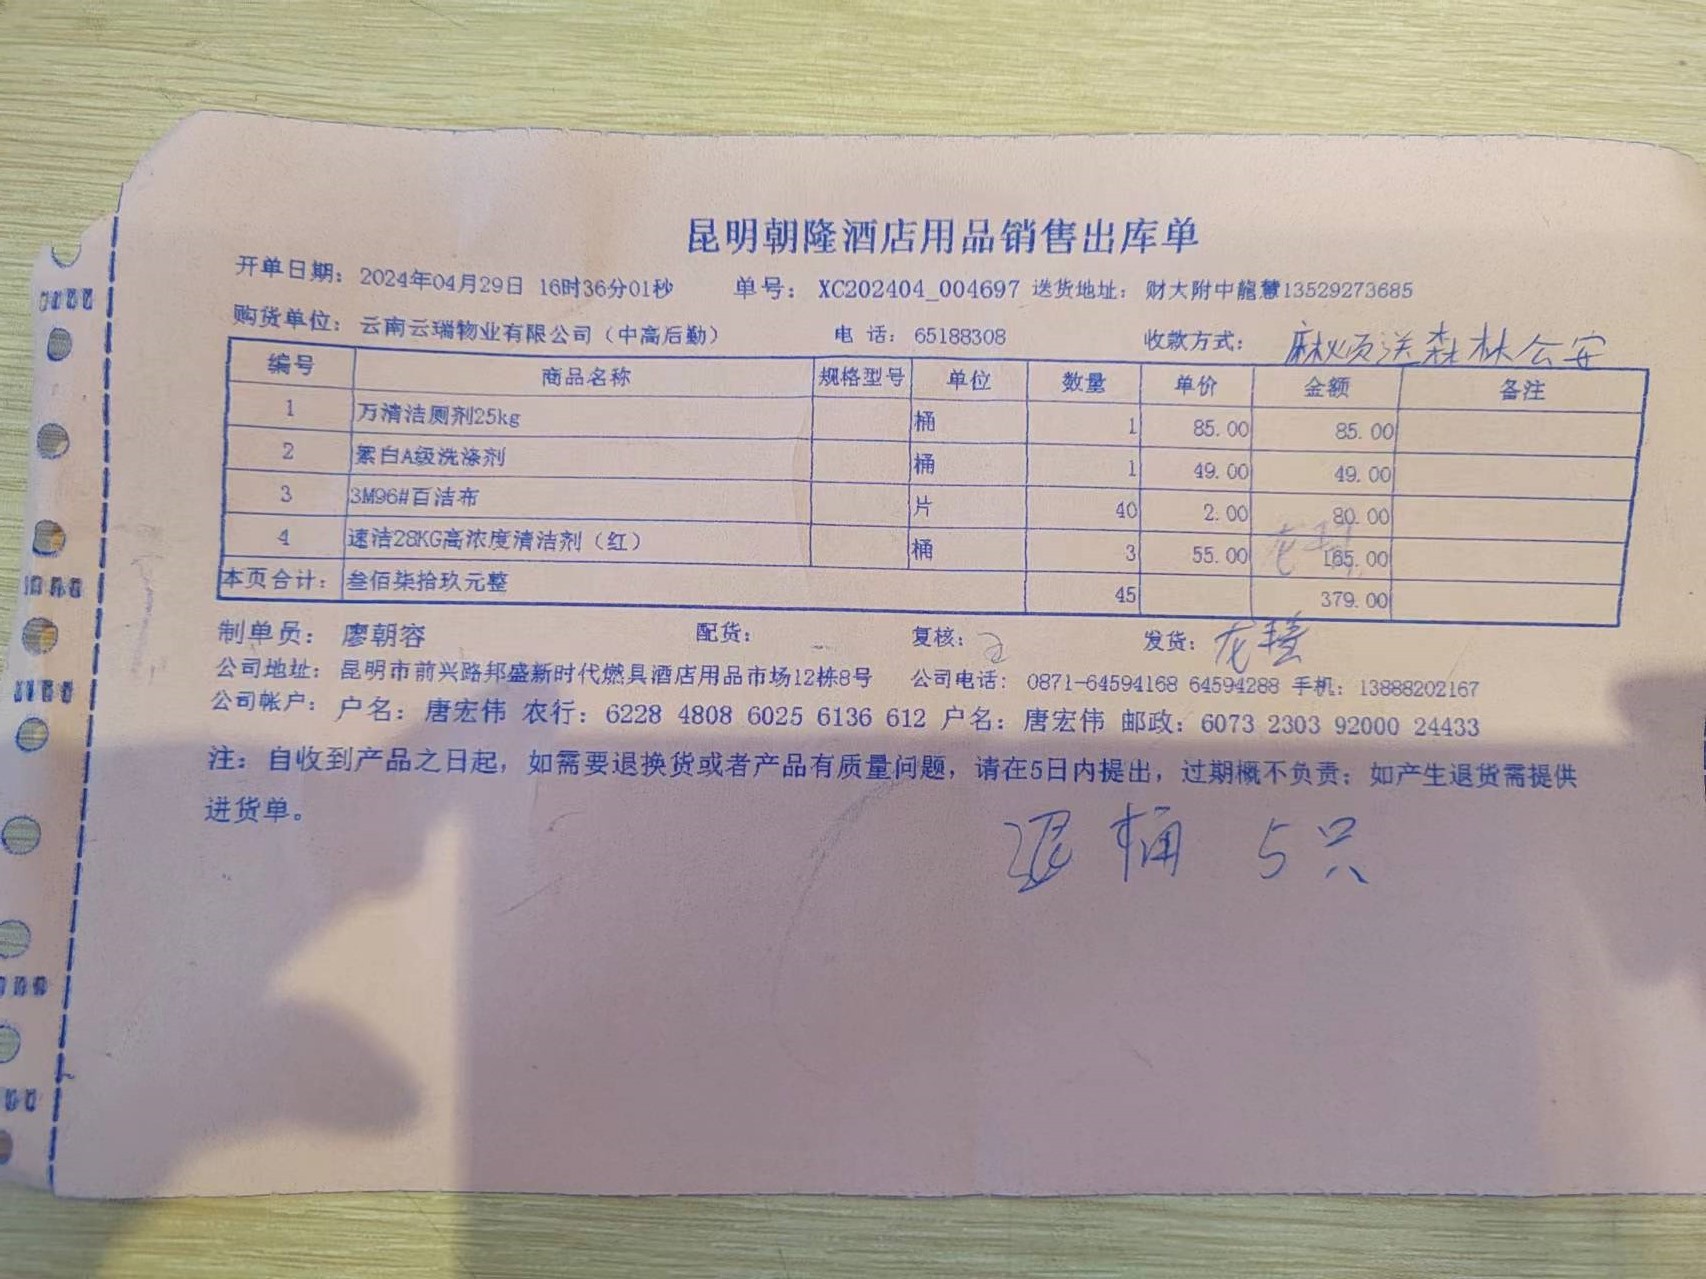 昆明朝隆酒店用品销售出库单
开单日期：2024年04月29日 16时36分01秒 单号：XC202404_004697 送货地址：财大附中龍慧13529273685
购货单位：云南云瑞物业有限公司（中高后勤） 电 话：65188308 收款方式：麻烦送森林公安
编号 商品名称 规格型号 单位 数量 单价 金额 备注
1 万清洁厕剂25kg 桶 1 85.00 85.00
2 絮白A级洗涤剂 桶 1 49.00 49.00
3 3M96#百洁布 片 40 2.00 80.00
4 速洁28KG高浓度清洁剂（红） 桶 3 55.00 165.00
本页合计：叁佰柒拾玖元整 45 379.00
制单员：廖朝容 配货： 复核： 发货：龙慧
公司地址：昆明市前兴路邦盛新时代燃具酒店用品市场12栋8号 公司电话：0871-64594168 64594288 手机：13888202167
公司帐户：户名：唐宏伟 农行：6228 4808 6025 6136 612 户名：唐宏伟 邮政：6073 2303 92000 24433
注：自收到产品之日起，如需要退换货或者产品有质量问题，请在5日内提出，过期概不负责；如产生退货需提供
进货单。
退桶 5只